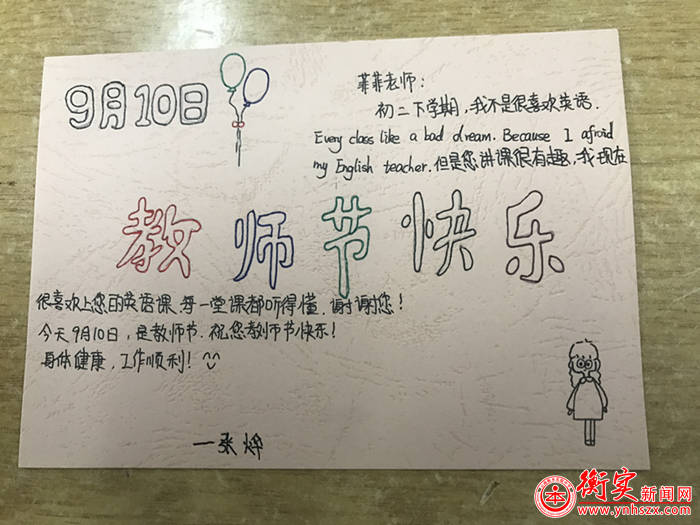 9月10日
菲菲老师：
初二下学期，我不是很喜欢英语.
Every class like a bad dream. Because I afraid
my English teacher.但是您讲课很有趣，我现在
教师节快乐
很喜欢上您的英语课.每一堂课都听得懂.谢谢您！
今天9月10日，是教师节.祝您教师节快乐！
身体健康，工作顺利！
—张烨
衡实新闻网
www.ynhszx.com